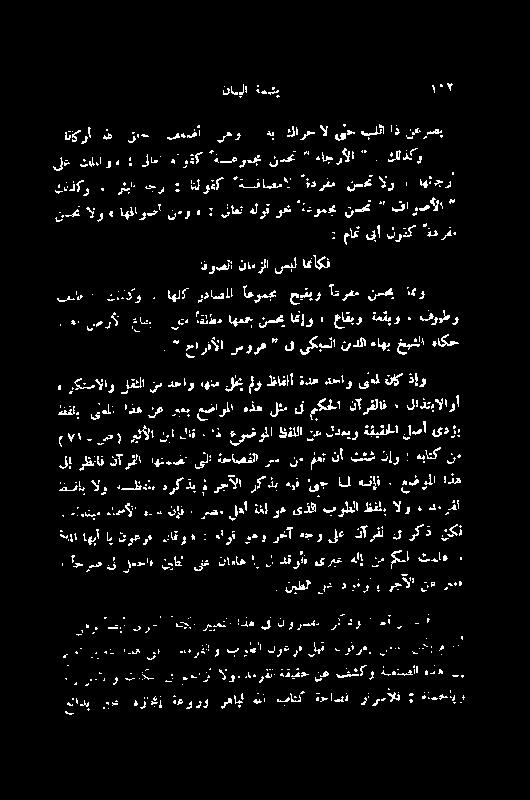 ١٠٢ يتيمة البيان
يصرعن ذا اللب حتى لا حراك به وهن أضعف خلق الله أركانا
وكذلك " الأرجاء " تحسن مجموعة كقوله تعالى : « والملك على
أرجائها » ولا تحسن مفردة لإضافة كقولنا : رجا البئر ، وكذلك
" الأصواف " تحسن مجموعة نحو قوله تعالى : « ومن أصوافها » ولا تحسن
مفردة كقول أبى تمام :
فكأنما لبس الزمان الصوفا
ومما يحسن مفرداً ويقبح مجموعاً المصادر كلها ، وكذلك طيف
وطيوف ، وبقعة وبقاع ، وإنما يحسن جمعها مضافاً مثل بقاع الأرض
حكاه الشيخ بهاء الدين السبكى فى " عروس الأفراح " .
وإذ كان لمعنى واحد عدة ألفاظ ولم يخل منها واحد من الثقل والاستكراه
أو الابتذال ، فالقرآن الحكيم فى مثل هذه المواضع يعبر عن هذا المعنى بلفظ
يؤدى أصل الحقيقة ويعدل عن اللفظ الموضوع له ، قال ابن الأثير (ص - ٧١)
من كتابه : وإن شئت أن تعلم من سر الفصاحة التى تضمنها القرآن فانظر إلى
هذا الموضع ، فإنه لما جىء فيه بذكر الآجر لم يذكره بلفظه ولا بلفظ
القرمد ، ولا بلفظ الطوب الذى هو لغة أهل مصر ، فإن هذه الأسماء مبتذلة
لكن ذكر فى القرآن على وجه آخر وهو قوله : « وقال فرعون يا أيها الملأ
ما علمت لكم من إله غيرى فأوقد لى يا هامان على الطين فاجعل لى صرحاً »
فعبر عن الآجر بالوقود على الطين .
وذكر المفسرون فى هذا التعبير أخرى أيضاً وهى
قبل فرعون الطوب والقرمد
هذه الصنعة وكشف عن حقيقة القرمد ولا
وبالجملة : فلأسرار فصاحة كتاب الله الباهر وروعة إعجازه بدائع